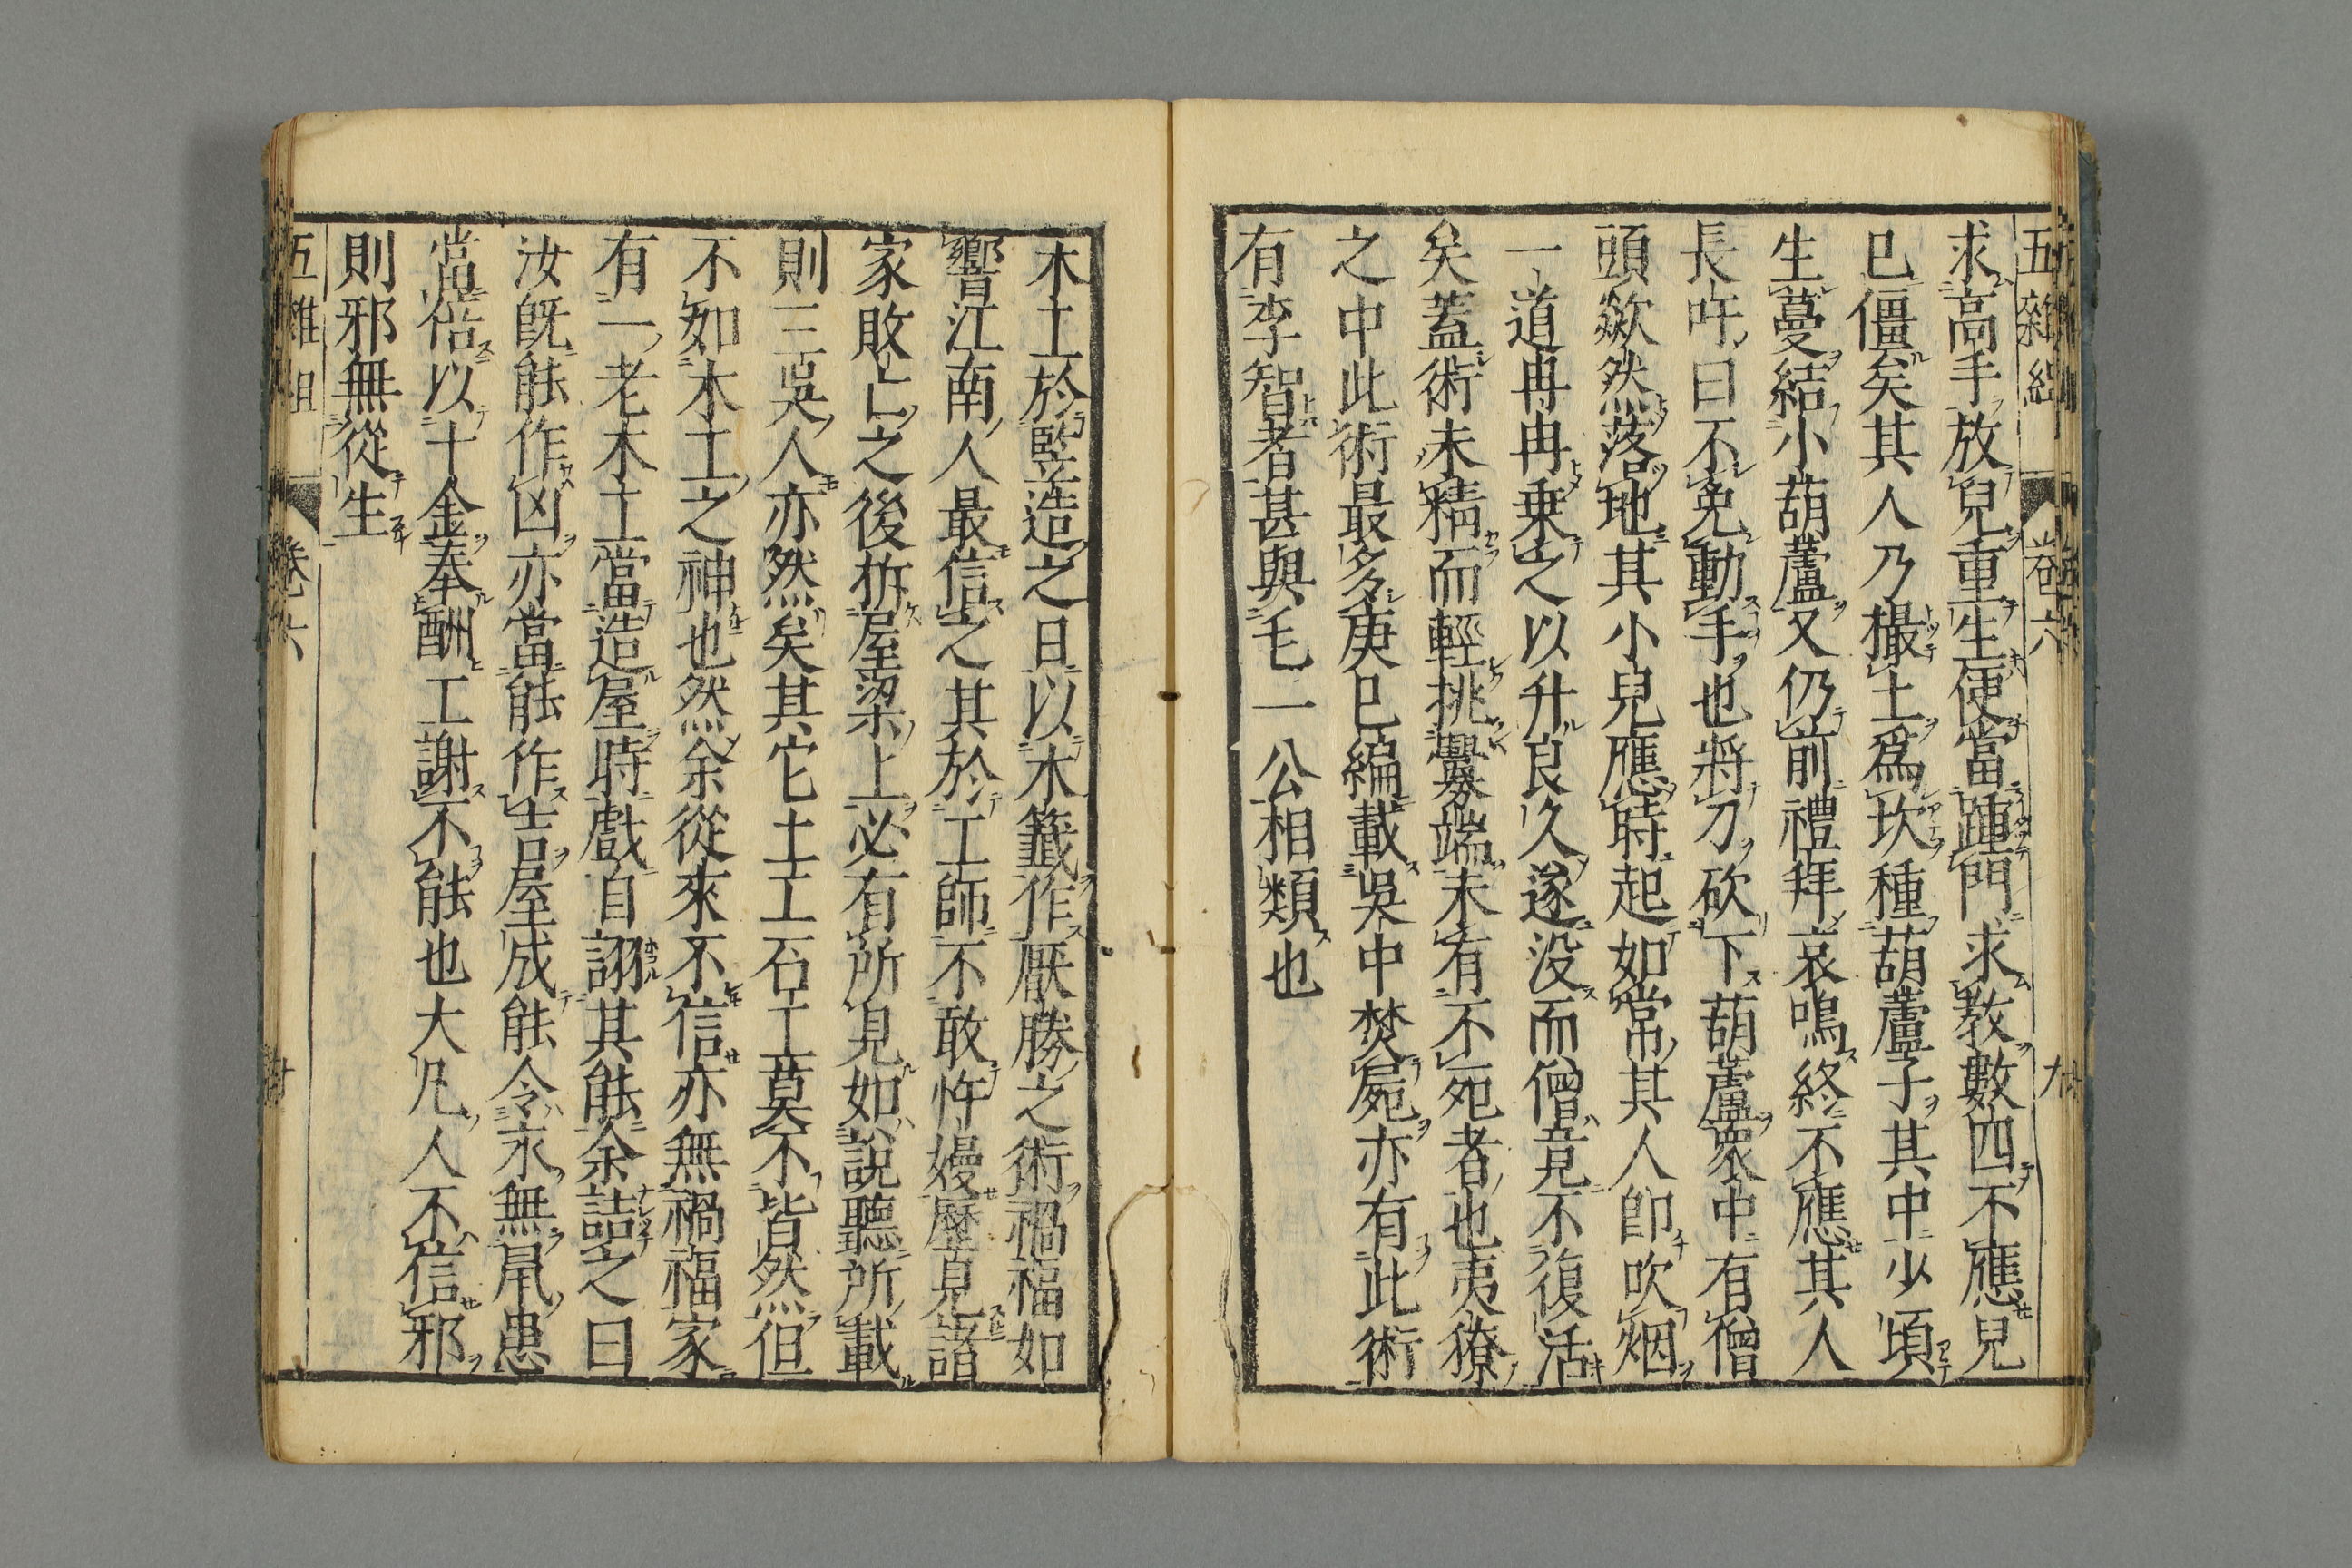 五雜組 卷六
求高手放兒重生便當踵門求敎數四不應兒
已僵矣其人乃撮土爲坎種葫蘆子其中少頃
生蔓結小葫蘆又仍前禮拜哀鳴終不應其人
長吁曰不免動手也將刀砍下葫蘆衆中有僧
頭欻然落地其小兒應時起如常其人卽吹烟
一道冉冉乗之以升良久遂没而僧竟不復活
矣蓋術未精而輕挑釁端未有不死者也夷獠
之中此術最多庚巳編載吳中焚屍亦有此術
有李智者甚與毛一公相類也
木工於竪造之日以木籤作厭勝之術禍福如
響江南人最信之其於工師不敢忤嫚歷見諸
家敗亡之後拆屋梁上必有所見如說聽所載
則三吳人亦然矣其它土工石工莫不皆然但
不如木工之神也然余從來不信亦無禍福家
有一老木工當造屋時戲自詡其能余詰之曰
汝旣能作凶亦當能作吉屋成能令永無鼠患
當倍以十金奉酬工謝不能也大凡人不信邪
則邪無從生
五雜組 卷六